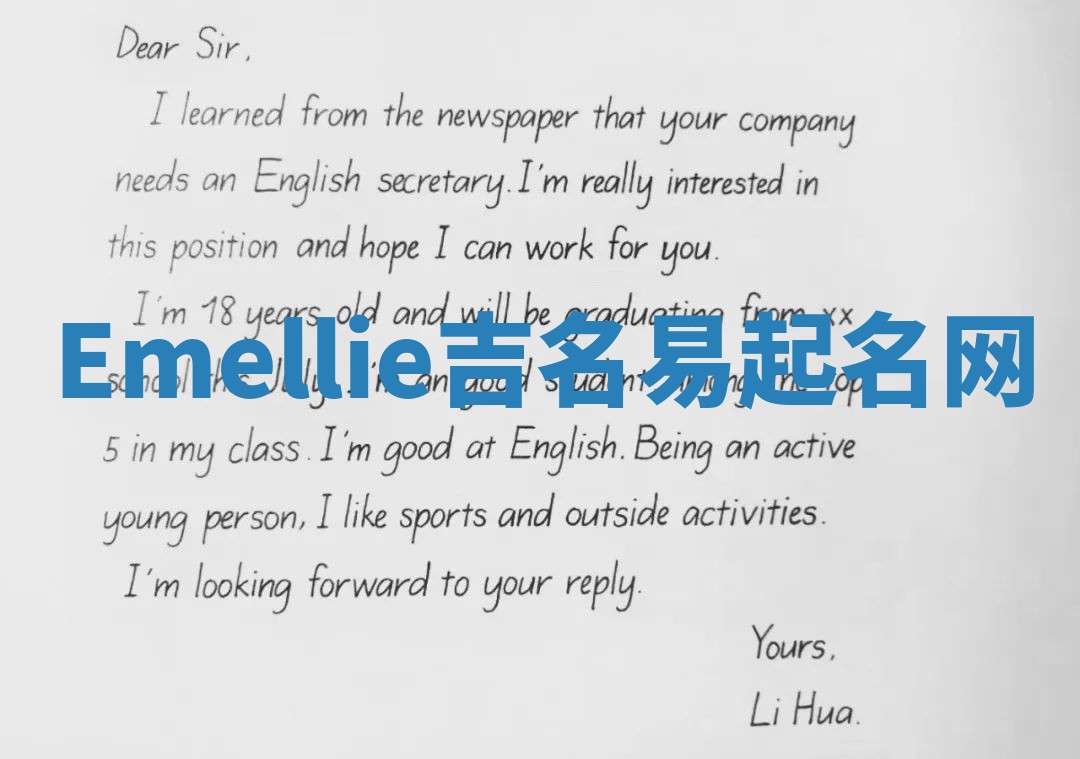 Dear Sir,
I learned from the newspaper that your company
needs an English secretary. I'm really interested in
this position and hope I can work for you.
I'm 18 years old and will be graduating from xx
Emellie吉名易起名网
school this July. I'm an good student among the top
5 in my class. I'm good at English. Being an active
young person, I like sports and outside activities.
I'm looking forward to your reply.
Yours,
Li Hua.